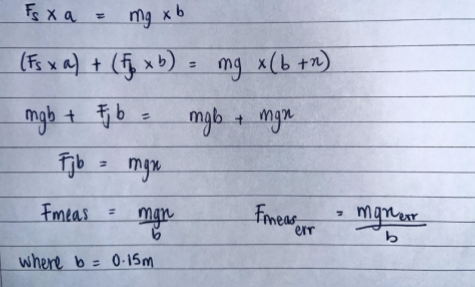 Fs x a = mg x b
(Fs x a) + (Fj x b) = mg x (b + x)
mgb + Fjb = mgb + mgx
Fjb = mgx
Fmeas = mgx/b Fmeas err = mgxerr/b
where b = 0.15m